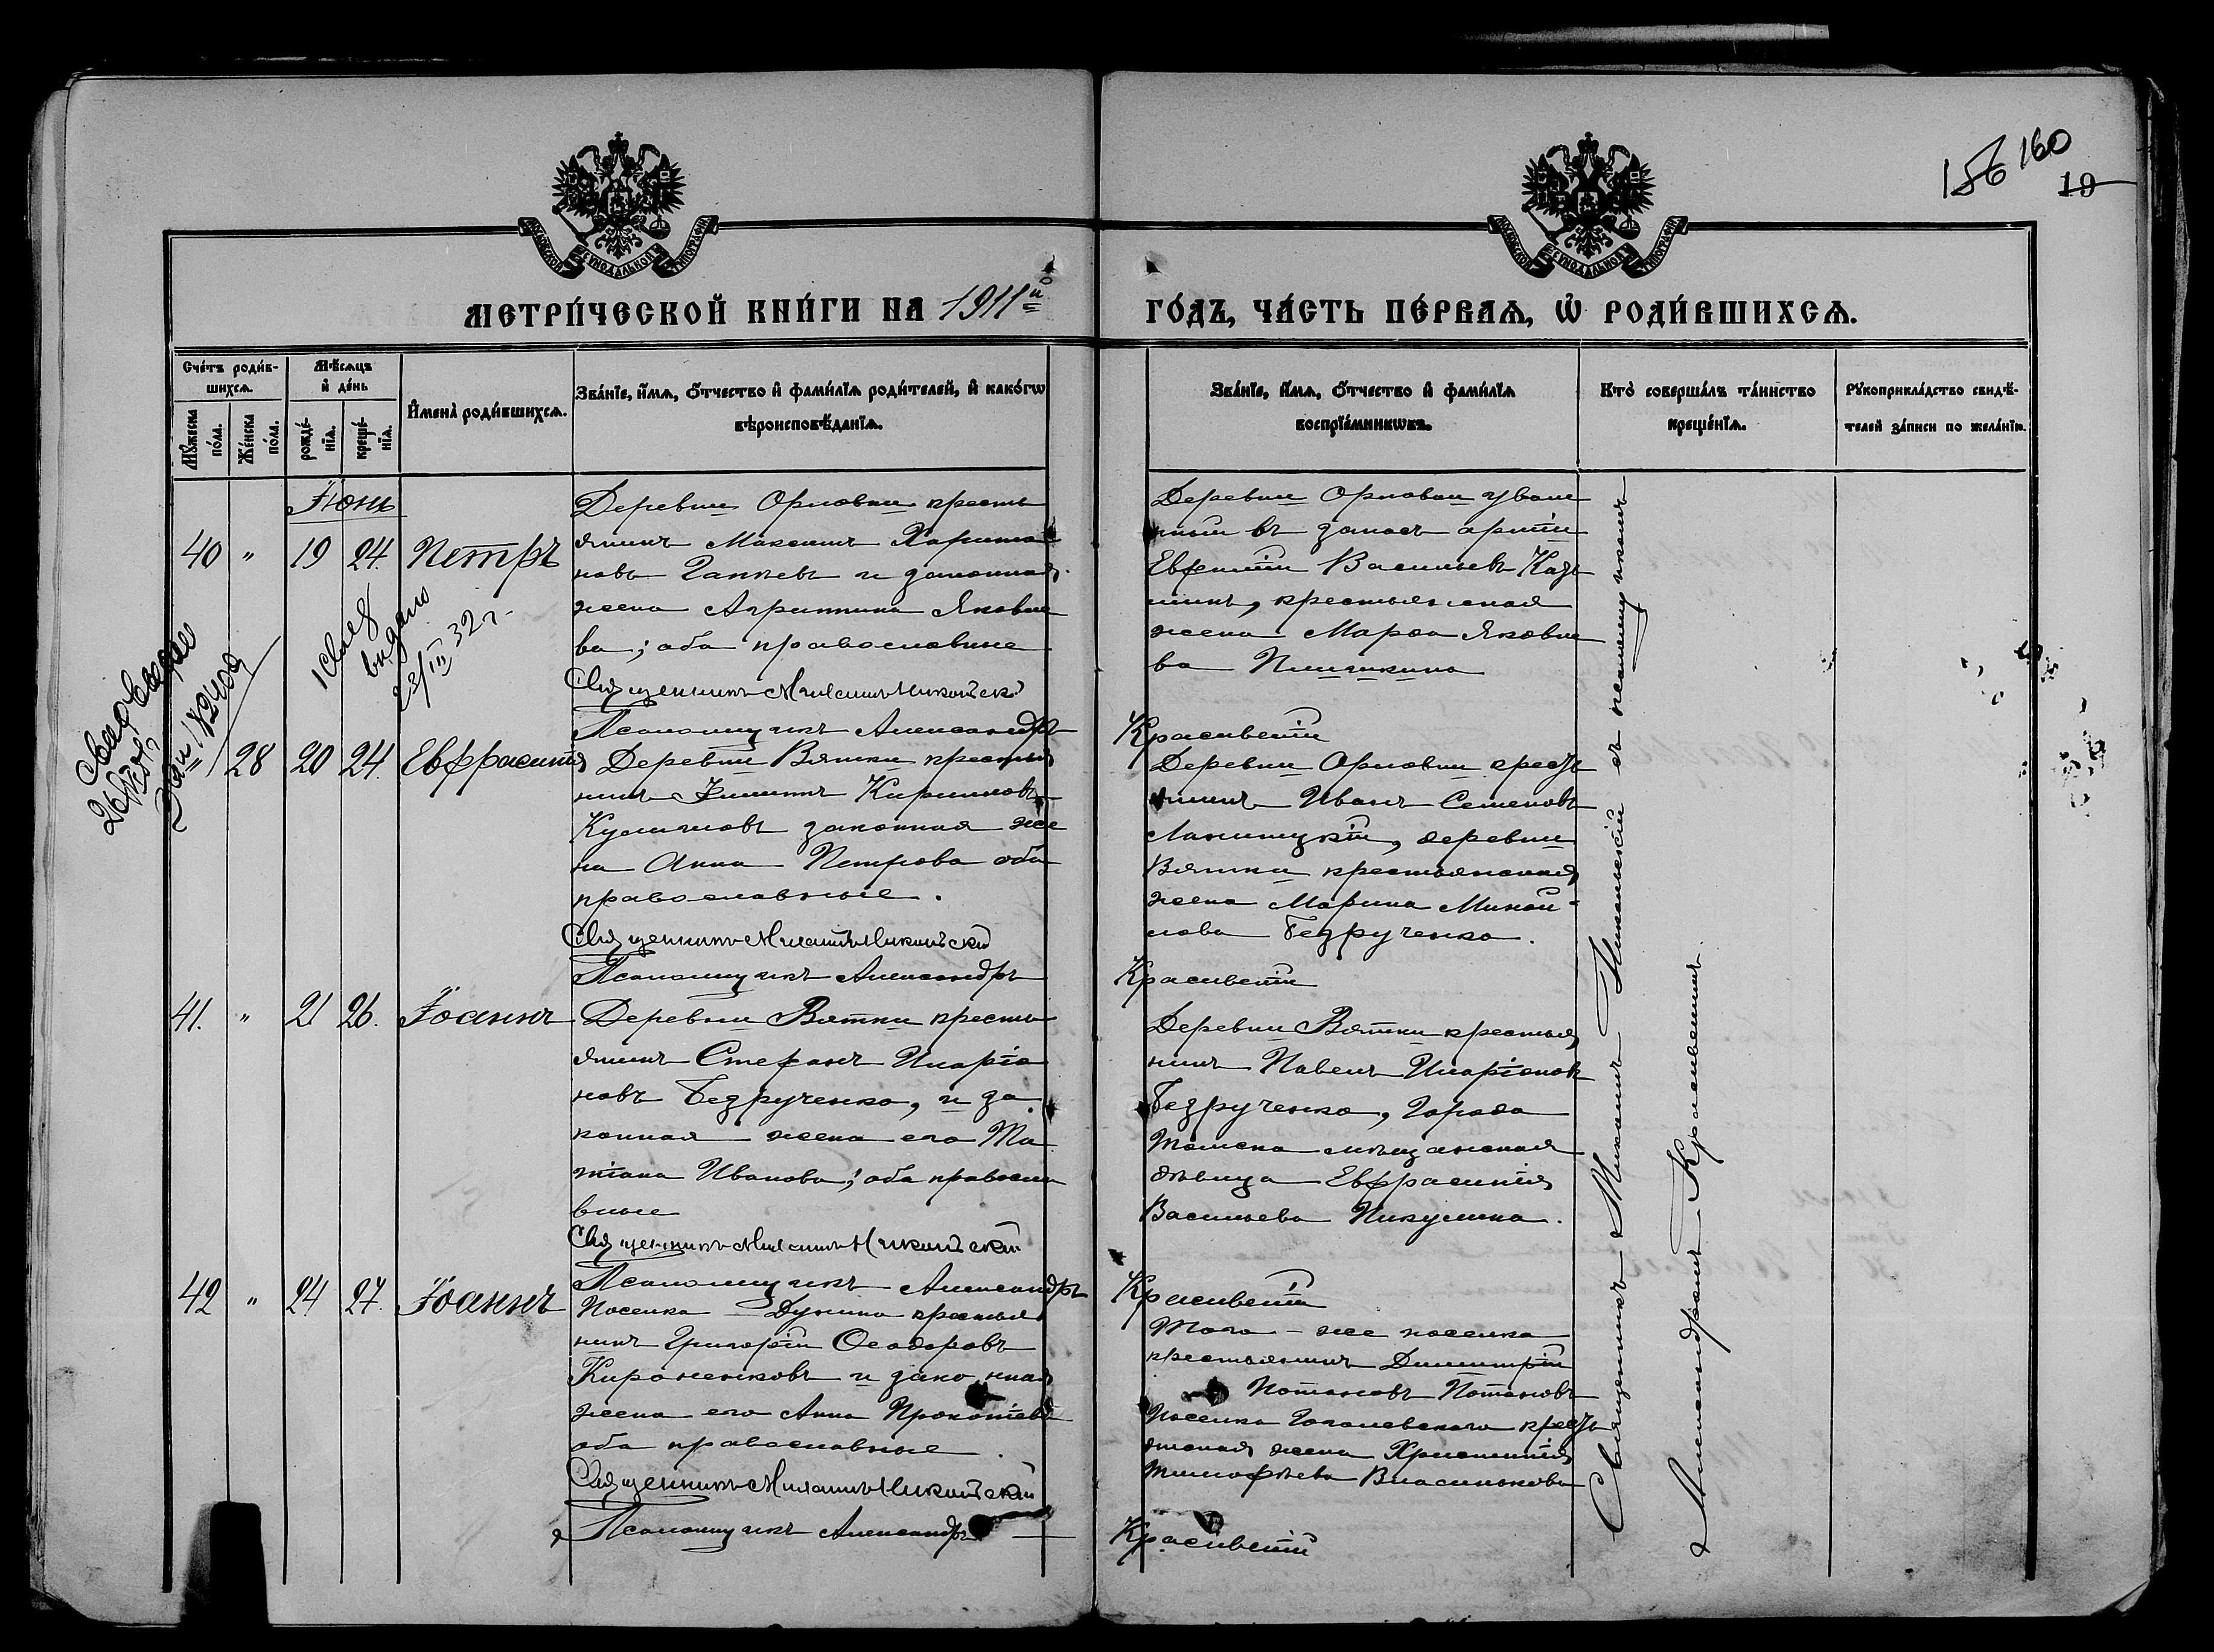 156 160
19
МЕТРИ́ЧЕСКОЙ КНИ́ГИ НА 1911й
ГО́ДЪ, ЧА́СТЬ ПЕ́РВАѦ, Ѽ РОДИ́ВШИХСѦ.
Сче́тъ роди́в-
шихсѧ.
Мꙋ́жеска
по́ла.
Же́нска
по́ла.
Мѣ́сѧцъ
и҆ де́нь
рожде́-
нїѧ.
креще́-
нїѧ.
И҆мена̀ роди́вшихсѧ.
Зва́нїе, и҆́мѧ, ѻ҆́тчество и҆ фами́лїѧ роди́телей, и҆ како́гѡ
вѣроисповѣ́данїѧ.
Зва́нїе, и҆́мѧ, ѻ҆́тчество и҆ фами́лїѧ
воспрїе́мникѡвъ.
Кто̀ соверша́лъ та́инство
креще́нїѧ.
Рꙋкоприкла́дство свидѣ́-
телей за́писи по жела́нїю.
Іюнь
40 " 19 24. Петръ
Деревни Орловки кресть
янинъ Максимъ Харито
новъ Гапѣевъ и законная
жена Агриппина Яковле
ва; оба православные
Священникъ Михаилъ Никольскій
Псаломщикъ Александръ
Деревни Орловки уволе
нный въ запасъ арміи
Евфимій Васильевъ Казь
минъ, крестьянская
жена Марѳа Яковле
ва Пшичкина
Красивскій
выдано
23/III 32 г.
" 28 20 24. Евфрасинія
Деревни Вятки крестья
нинъ Филиппъ Кирилловъ
Куличковъ законная же
на Анна Петрова оба
православные.
Священникъ Михаилъ Никольскій
Псаломщикъ Александръ
Деревни Орловки кресть
янинъ Иванъ Семеновъ
Лакницкій, деревни
Вятки крестьянская
жена Марина Михай-
лова Безрученко.
Красивскій
41. " 21 26. Іоаннъ
Деревни Вятки кресть
янинъ Стефанъ Иларіо
новъ Безрученко, и за
конная жена его Та
тіана Иванова; оба правосла
вные
Священникъ Михаилъ Никольскій
Псаломщикъ Александръ
Деревни Вятки крестья
нинъ Павелъ Иларіоновъ
Безрученко, города
Томска мѣщанская
дѣвица Евфрасинія
Васильева Пикулина.
Красивскій
42 " 24 27. Іоаннъ
Поселка Дунина крестья
нинъ Григорій Ѳеодоровъ
Кироненковъ и законная
жена его Анна Прокопіева
оба православные
Священникъ Михаилъ Никольскій
Псаломщикъ Александръ
Того-же поселка
крестьянинъ Димитрій
Потаповъ Потаповъ
поселка Гоголевскаго кресть
янская жена Христинія
Тимофѣева Власенкова
Красивскій
Священникъ Михаилъ Никольскій съ псаломщикомъ
Александромъ Красивскимъ.